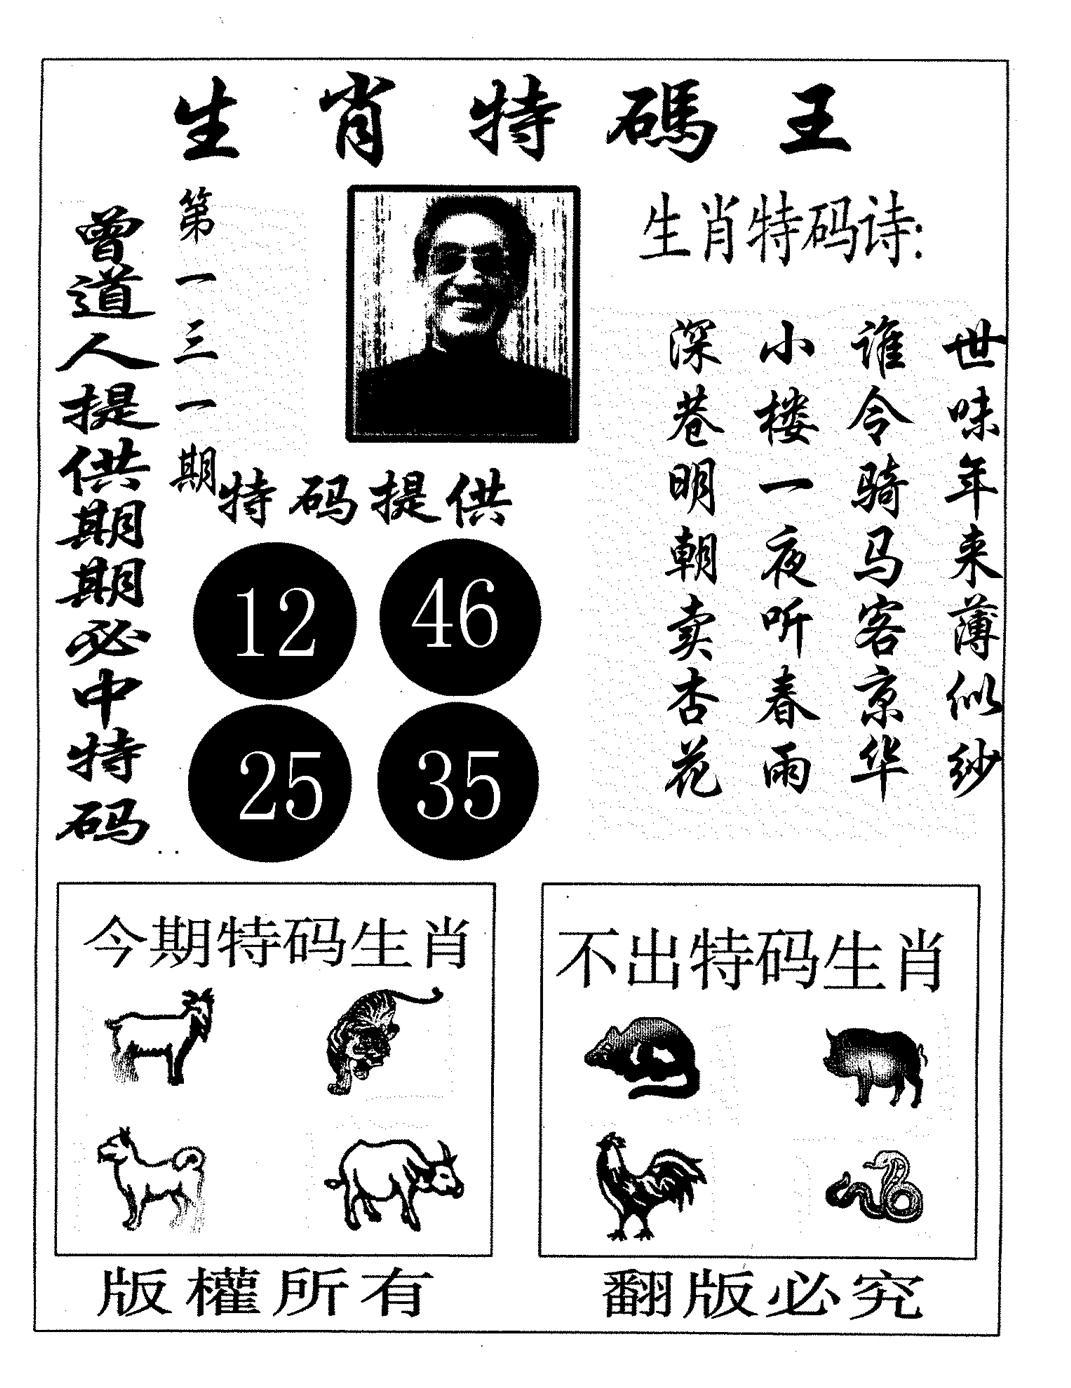 生肖特碼王
曾道人提供期期必中特码
第一三一期
生肖特码诗:
世味年来薄似纱
谁令骑马客京华
小楼一夜听春雨
深巷明朝卖杏花
特码提供
12 46
25 35
今期特码生肖
不出特码生肖
版權所有
翻版必究